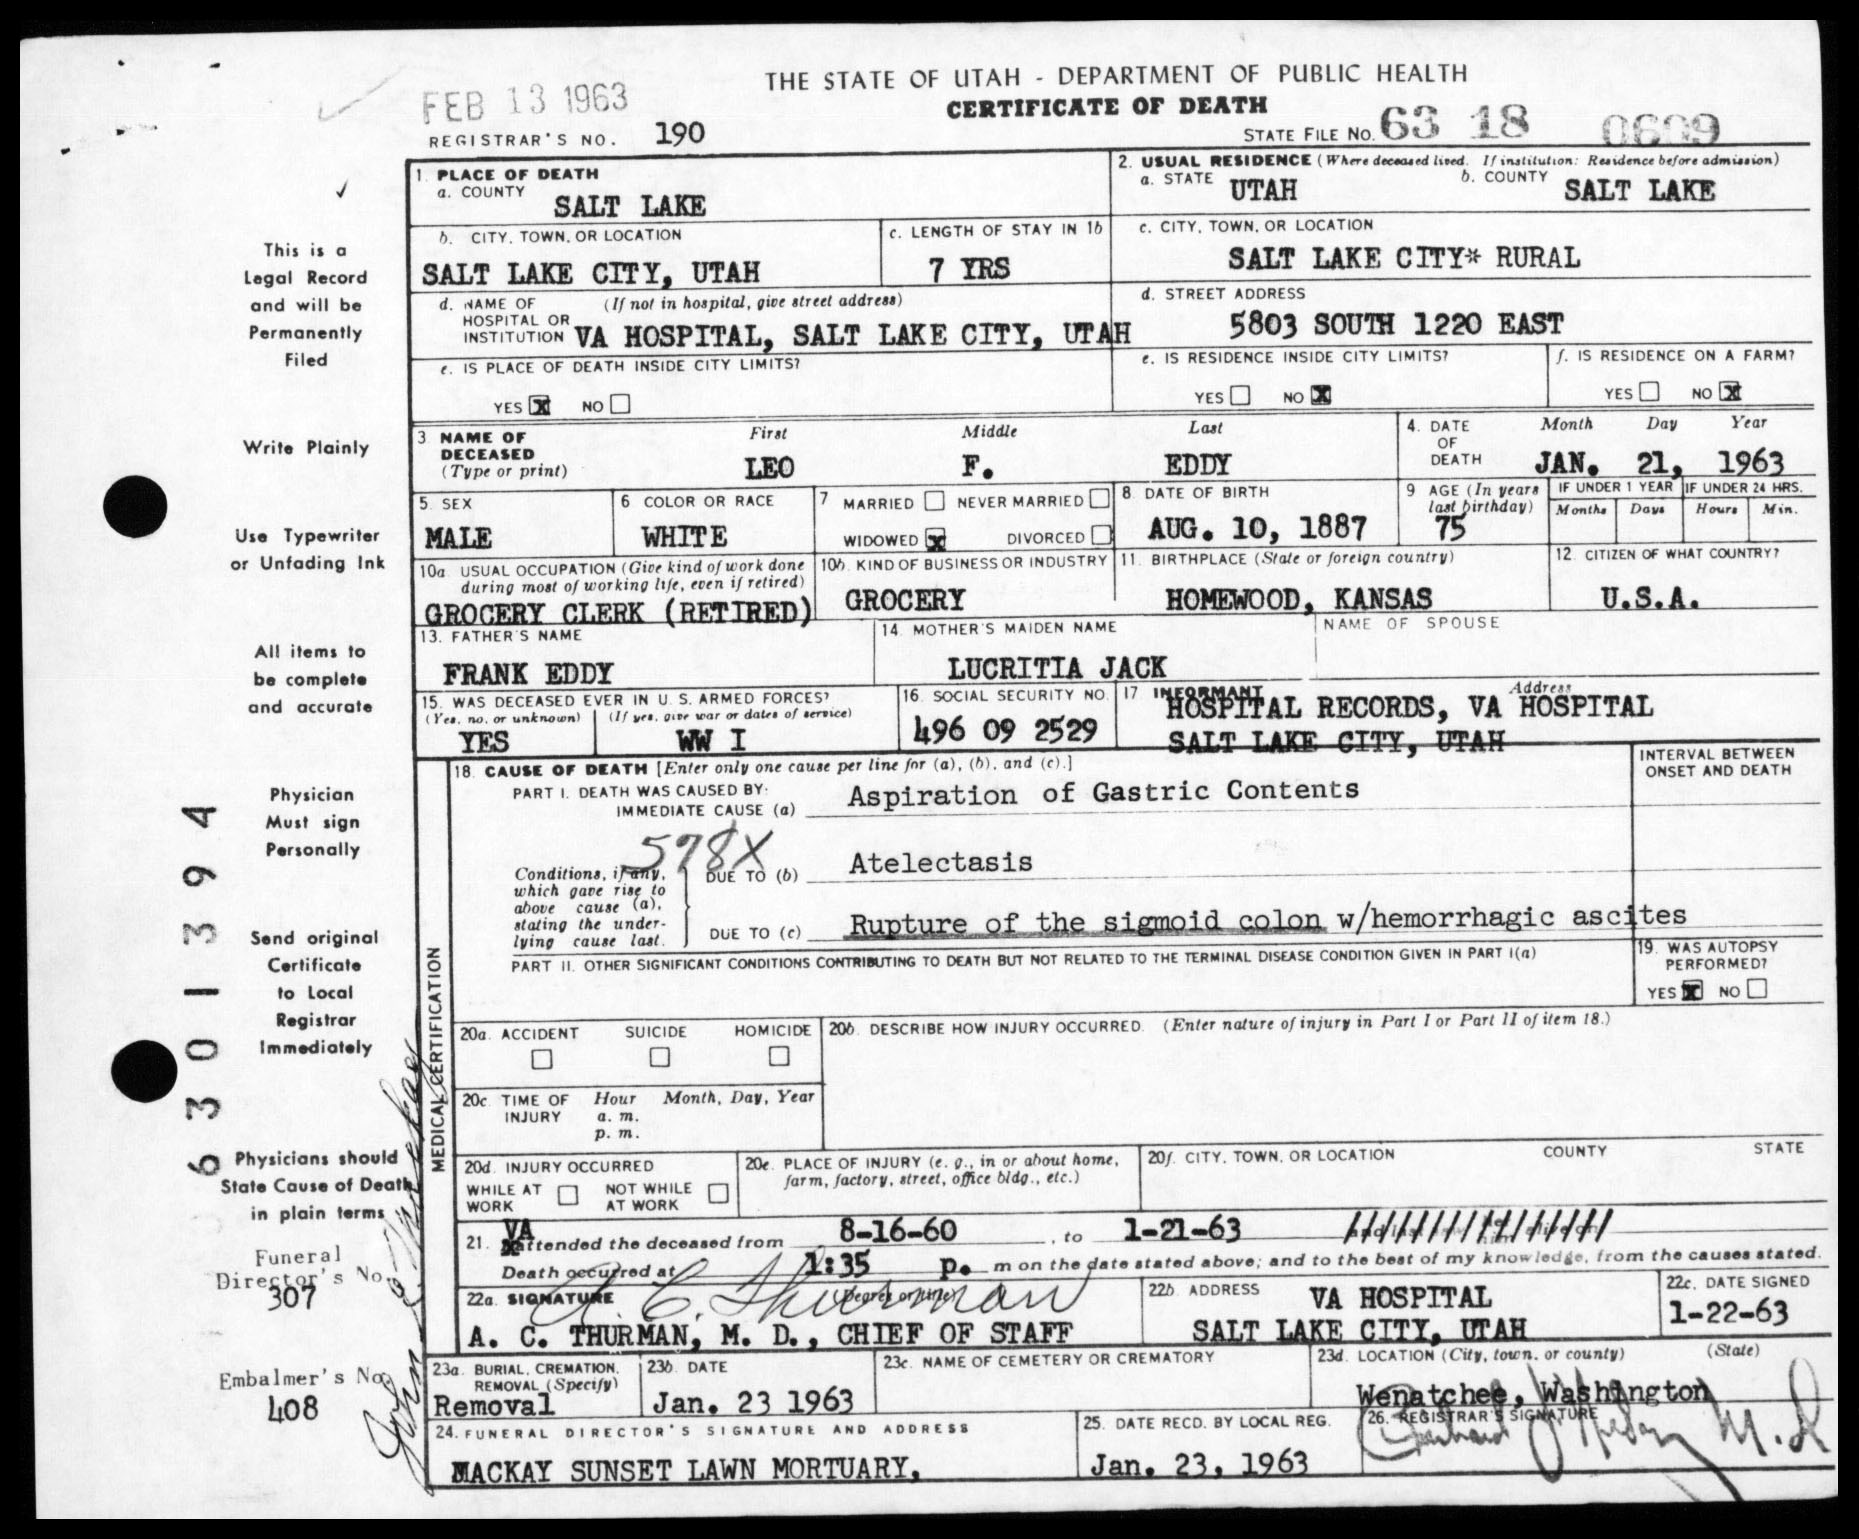 THE STATE OF UTAH - DEPARTMENT OF PUBLIC HEALTH
FEB 13 1963
CERTIFICATE OF DEATH
REGISTRAR'S NO. 190
STATE FILE NO. 63 18 0609
1. PLACE OF DEATH
a. COUNTY
SALT LAKE
2. USUAL RESIDENCE (Where deceased lived. If institution: Residence before admission)
a. STATE UTAH
b. COUNTY SALT LAKE
b. CITY, TOWN, OR LOCATION
SALT LAKE CITY, UTAH
c. LENGTH OF STAY IN 1b
7 YRS
c. CITY, TOWN, OR LOCATION
SALT LAKE CITY* RURAL
d. NAME OF HOSPITAL OR INSTITUTION (If not in hospital, give street address)
VA HOSPITAL, SALT LAKE CITY, UTAH
d. STREET ADDRESS
5803 SOUTH 1220 EAST
e. IS PLACE OF DEATH INSIDE CITY LIMITS?
YES X NO
e. IS RESIDENCE INSIDE CITY LIMITS?
YES NO X
f. IS RESIDENCE ON A FARM?
YES NO X
3. NAME OF DECEASED (Type or print)
First Middle Last
LEO F. EDDY
4. DATE OF DEATH
Month Day Year
JAN. 21, 1963
5. SEX
MALE
6 COLOR OR RACE
WHITE
7 MARRIED NEVER MARRIED
WIDOWED X DIVORCED
8 DATE OF BIRTH
AUG. 10, 1887
9 AGE (In years last birthday)
75
IF UNDER 1 YEAR
Months Days
IF UNDER 24 HRS.
Hours Min.
10a. USUAL OCCUPATION (Give kind of work done during most of working life, even if retired)
GROCERY CLERK (RETIRED)
10b. KIND OF BUSINESS OR INDUSTRY
GROCERY
11. BIRTHPLACE (State or foreign country)
HOMEWOOD, KANSAS
12. CITIZEN OF WHAT COUNTRY?
U.S.A.
13. FATHER'S NAME
FRANK EDDY
14. MOTHER'S MAIDEN NAME
LUCRITIA JACK
NAME OF SPOUSE
15. WAS DECEASED EVER IN U. S. ARMED FORCES?
(Yes, no, or unknown) (If yes, give war or dates of service)
YES WW I
16. SOCIAL SECURITY NO.
496 09 2529
17 INFORMANT Address
HOSPITAL RECORDS, VA HOSPITAL
SALT LAKE CITY, UTAH
MEDICAL CERTIFICATION
18. CAUSE OF DEATH [Enter only one cause per line for (a), (b), and (c).]
INTERVAL BETWEEN ONSET AND DEATH
PART I. DEATH WAS CAUSED BY:
IMMEDIATE CAUSE (a) Aspiration of Gastric Contents
578X
Conditions, if any, which gave rise to above cause (a), stating the underlying cause last.
DUE TO (b) Atelectasis
DUE TO (c) Rupture of the sigmoid colon w/hemorrhagic ascites
PART II. OTHER SIGNIFICANT CONDITIONS CONTRIBUTING TO DEATH BUT NOT RELATED TO THE TERMINAL DISEASE CONDITION GIVEN IN PART I(a)
19. WAS AUTOPSY PERFORMED?
YES X NO
20a. ACCIDENT SUICIDE HOMICIDE
20b. DESCRIBE HOW INJURY OCCURRED. (Enter nature of injury in Part I or Part II of item 18.)
20c. TIME OF INJURY Hour Month, Day, Year
a. m.
p. m.
20d. INJURY OCCURRED
WHILE AT WORK NOT WHILE AT WORK
20e. PLACE OF INJURY (e. g., in or about home, farm, factory, street, office bldg., etc.)
20f. CITY, TOWN, OR LOCATION COUNTY STATE
21. VA attended the deceased from 8-16-60, to 1-21-63
Death occurred at 1:35 p. m on the date stated above; and to the best of my knowledge, from the causes stated.
22a. SIGNATURE (Degree or title)
A C Thurman
A. C. THURMAN, M. D., CHIEF OF STAFF
22b. ADDRESS
VA HOSPITAL
SALT LAKE CITY, UTAH
22c. DATE SIGNED
1-22-63
23a. BURIAL, CREMATION, REMOVAL (Specify)
Removal
23b. DATE
Jan. 23 1963
23c. NAME OF CEMETERY OR CREMATORY
23d. LOCATION (City, town, or county) (State)
Wenatchee, Washington
24. FUNERAL DIRECTOR'S SIGNATURE AND ADDRESS
MACKAY SUNSET LAWN MORTUARY,
25. DATE RECD. BY LOCAL REG.
Jan. 23, 1963
26. REGISTRAR'S SIGNATURE
M.D
This is a
Legal Record
and will be
Permanently
Filed
Write Plainly
Use Typewriter
or Unfading Ink
All items to
be complete
and accurate
Physician
Must sign
Personally
Send original
Certificate
to Local
Registrar
Immediately
Physicians should
State Cause of Death
in plain terms
Funeral
Director's No.
307
Embalmer's No.
408
6301394